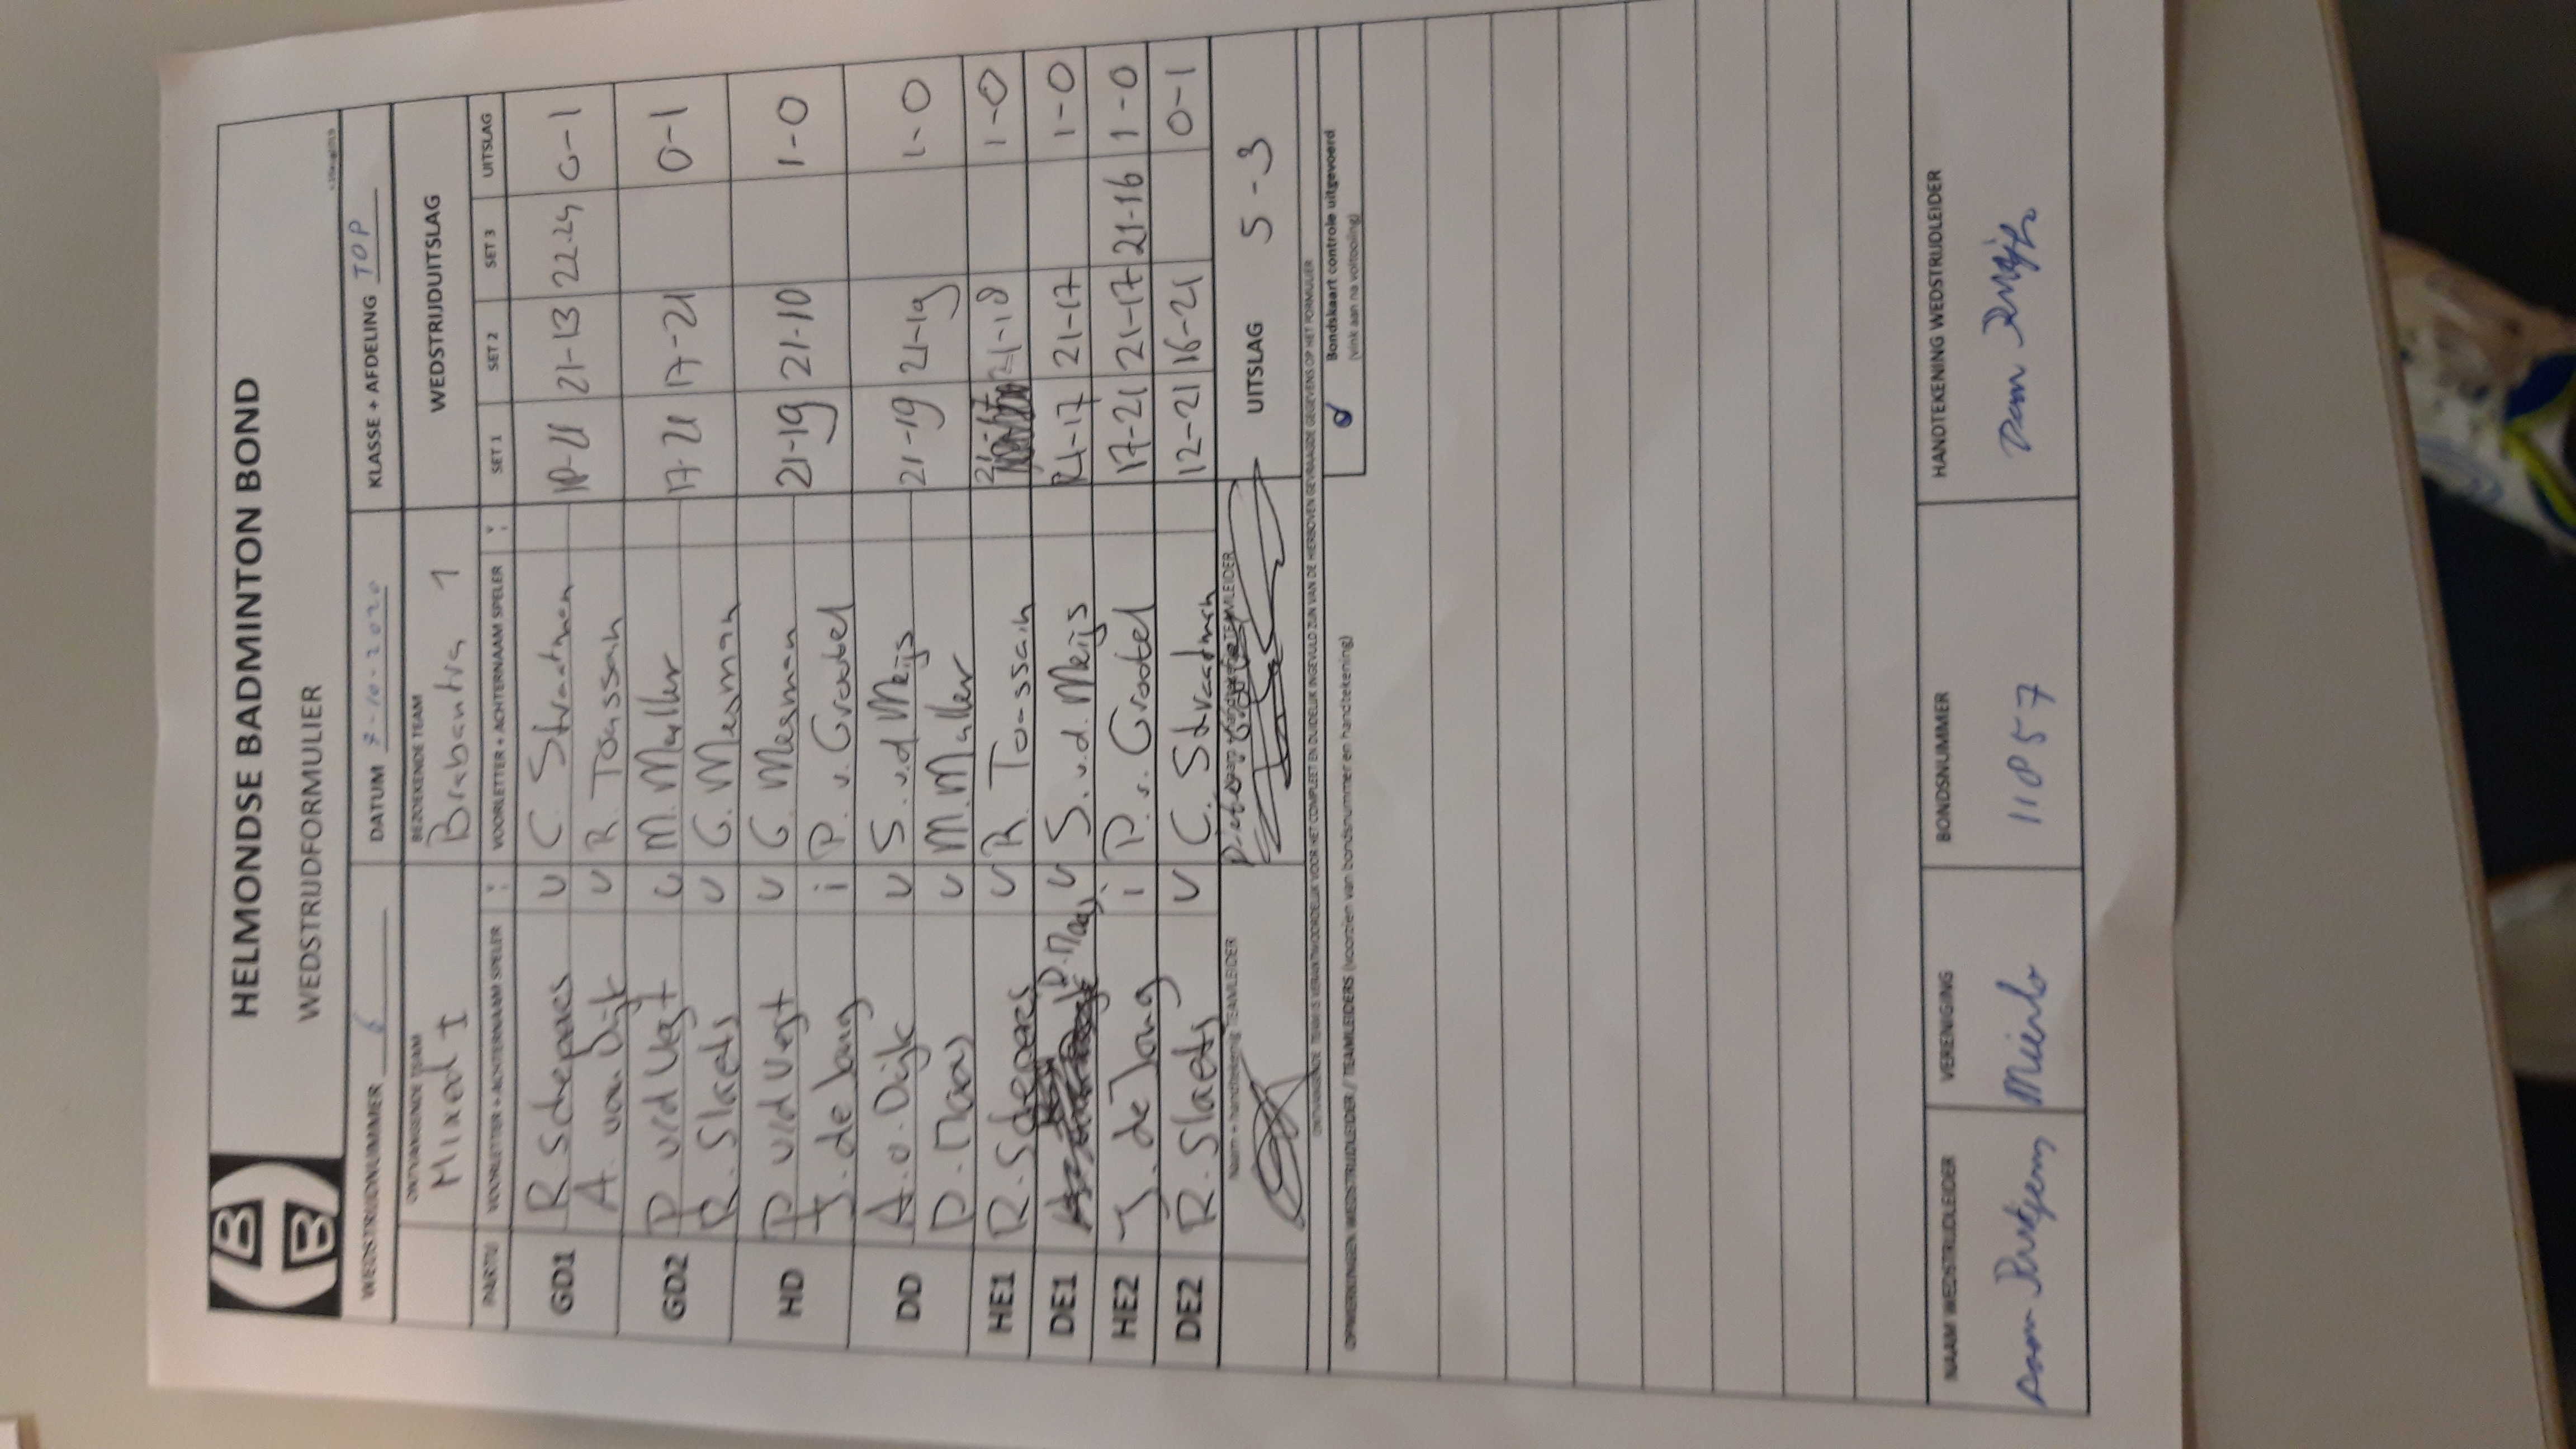 HBB
HELMONDSE BADMINTON BOND
WEDSTRIJDFORMULIER
WEDSTRIJDNUMMER 6 DATUM 7-10-2020 KLASSE + AFDELING TOP
ONTVANGENDE TEAM BEZOEKENDE TEAM WEDSTRIJDUITSLAG
Mixed I Brabantia 1
PARTIJ VOORLETTER + ACHTERNAAM SPELER : VOORLETTER + ACHTERNAAM SPELER : SET 1 SET 2 SET 3 UITSLAG
GD1 R. Schepers u C. Straatman 21-13 22-24 0-1
A. van Dijk u R. Toussain
GD2 P v/d Vegt u M. Muller 17-21 17-21 0-1
R. Slaets u G. Mesman
HD P v/d Vegt u G. Mesman 21-19 21-10 1-0
J. de Jong i P. v. Grootel
DD A. v. Dijk u S. v.d Meijs 21-19 21-19 1-0
D. Maas u M. Muller
HE1 R. Schepers u R. Toussain 21-18 1-0
DE1 D. Maas u S. v.d. Meijs 21-17 21-17 1-0
HE2 J. de Jong i P. v. Grootel 17-21 21-17 21-16 1-0
DE2 R. Slaets u C. Straatman 12-21 16-21 0-1
Naam + handtekening TEAMLEIDER Naam + handtekening TEAMLEIDER UITSLAG 5-3
ONTVANGENDE TEAM IS VERANTWOORDELIJK VOOR HET COMPLEET EN DUIDELIJK INGEVULD ZIJN VAN DE HIERBOVEN GEVRAAGDE GEGEVENS OP HET FORMULIER
Bondskaart controle uitgevoerd
(vink aan na voltooiing)
OPMERKINGEN WEDSTRIJDLEIDER / TEAMLEIDERS (voorzien van bondsnummer en handtekening)
NAAM WEDSTRIJDLEIDER VERENIGING BONDSNUMMER HANDTEKENING WEDSTRIJDLEIDER
Rutjens Mierlo 11857